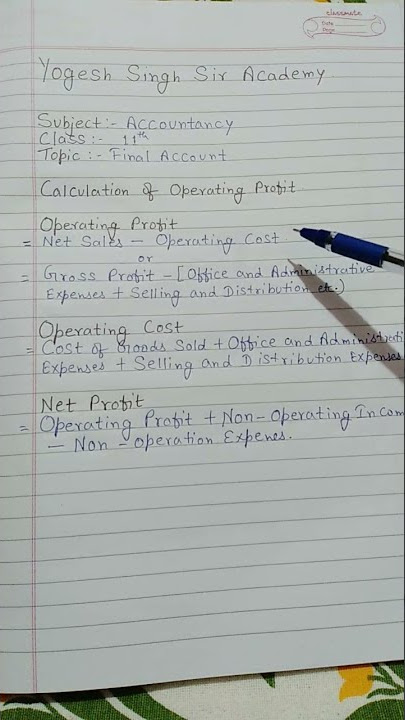 classmate
Date
Page
Yogesh Singh Sir Academy
Subject :- Accountancy
Class :- 11th
Topic :- Final Account
Calculation of Operating Profit
Operating Profit
= Net Sales - Operating Cost
or
= Gross Profit - [Office and Administrative
Expenses + Selling and Distribution etc.)
Operating Cost
= Cost of Goods Sold + Office and Administrati
Expenses + Selling and Distribution Expenses
Net Profit
= Operating Profit + Non-Operating Incom
- Non-operation Expenes.